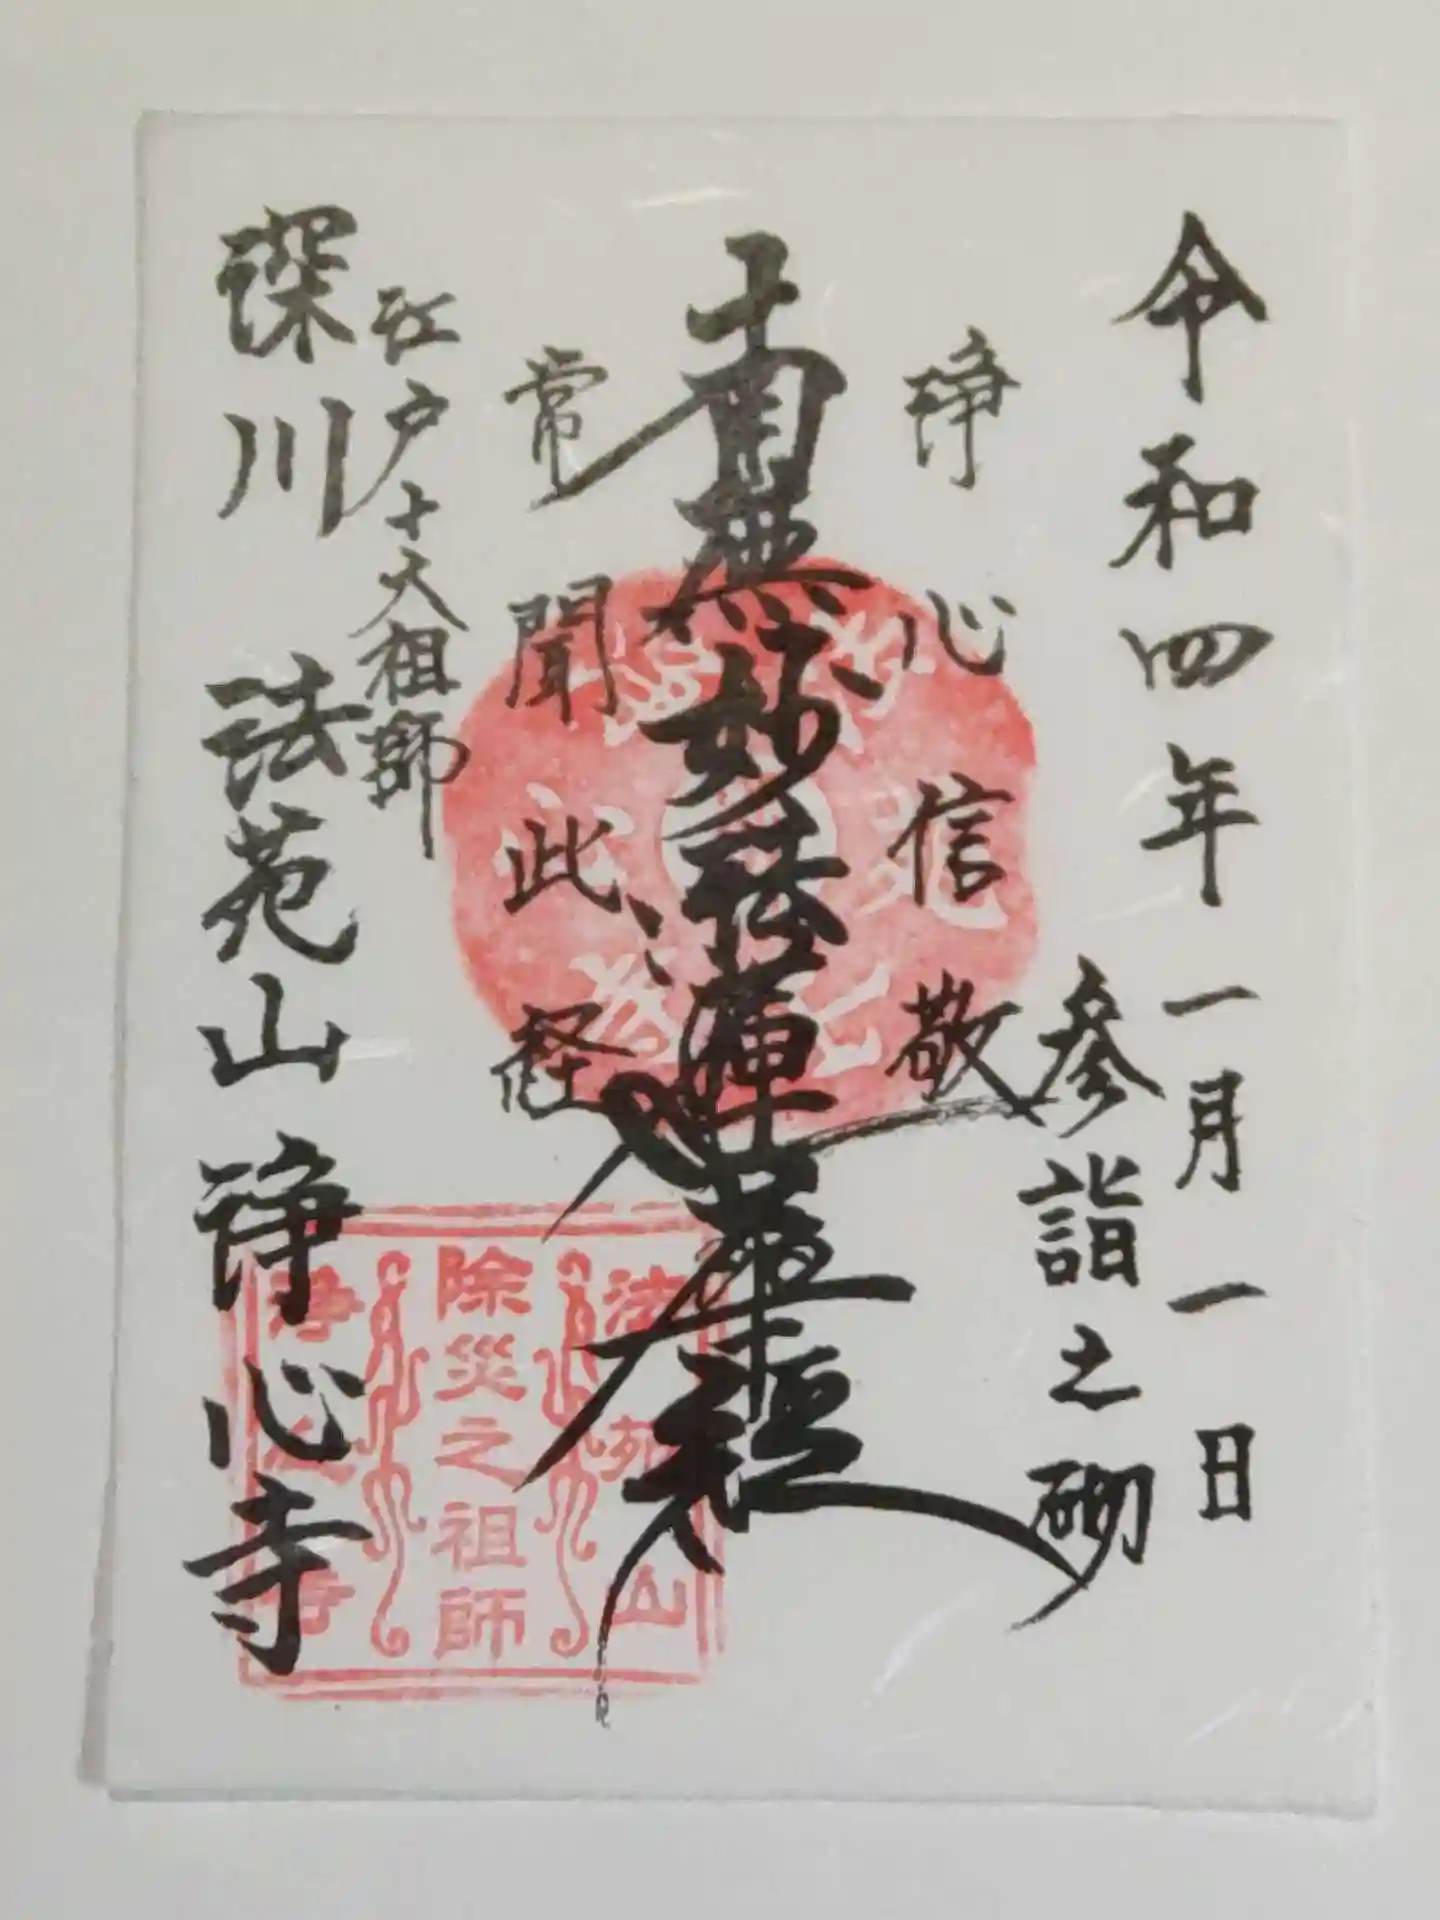 令和四年一月一日
参詣之砌
浄心信敬
南無妙法蓮華経
常聞此経
江戸十大祖師
深川 法苑山 浄心寺
法苑山
除災之祖師
浄心寺